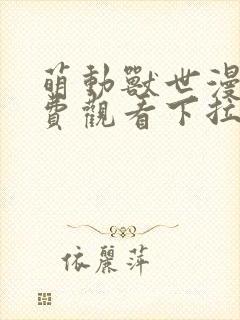 萌動獸世漫
費觀看下拉
依麗萍